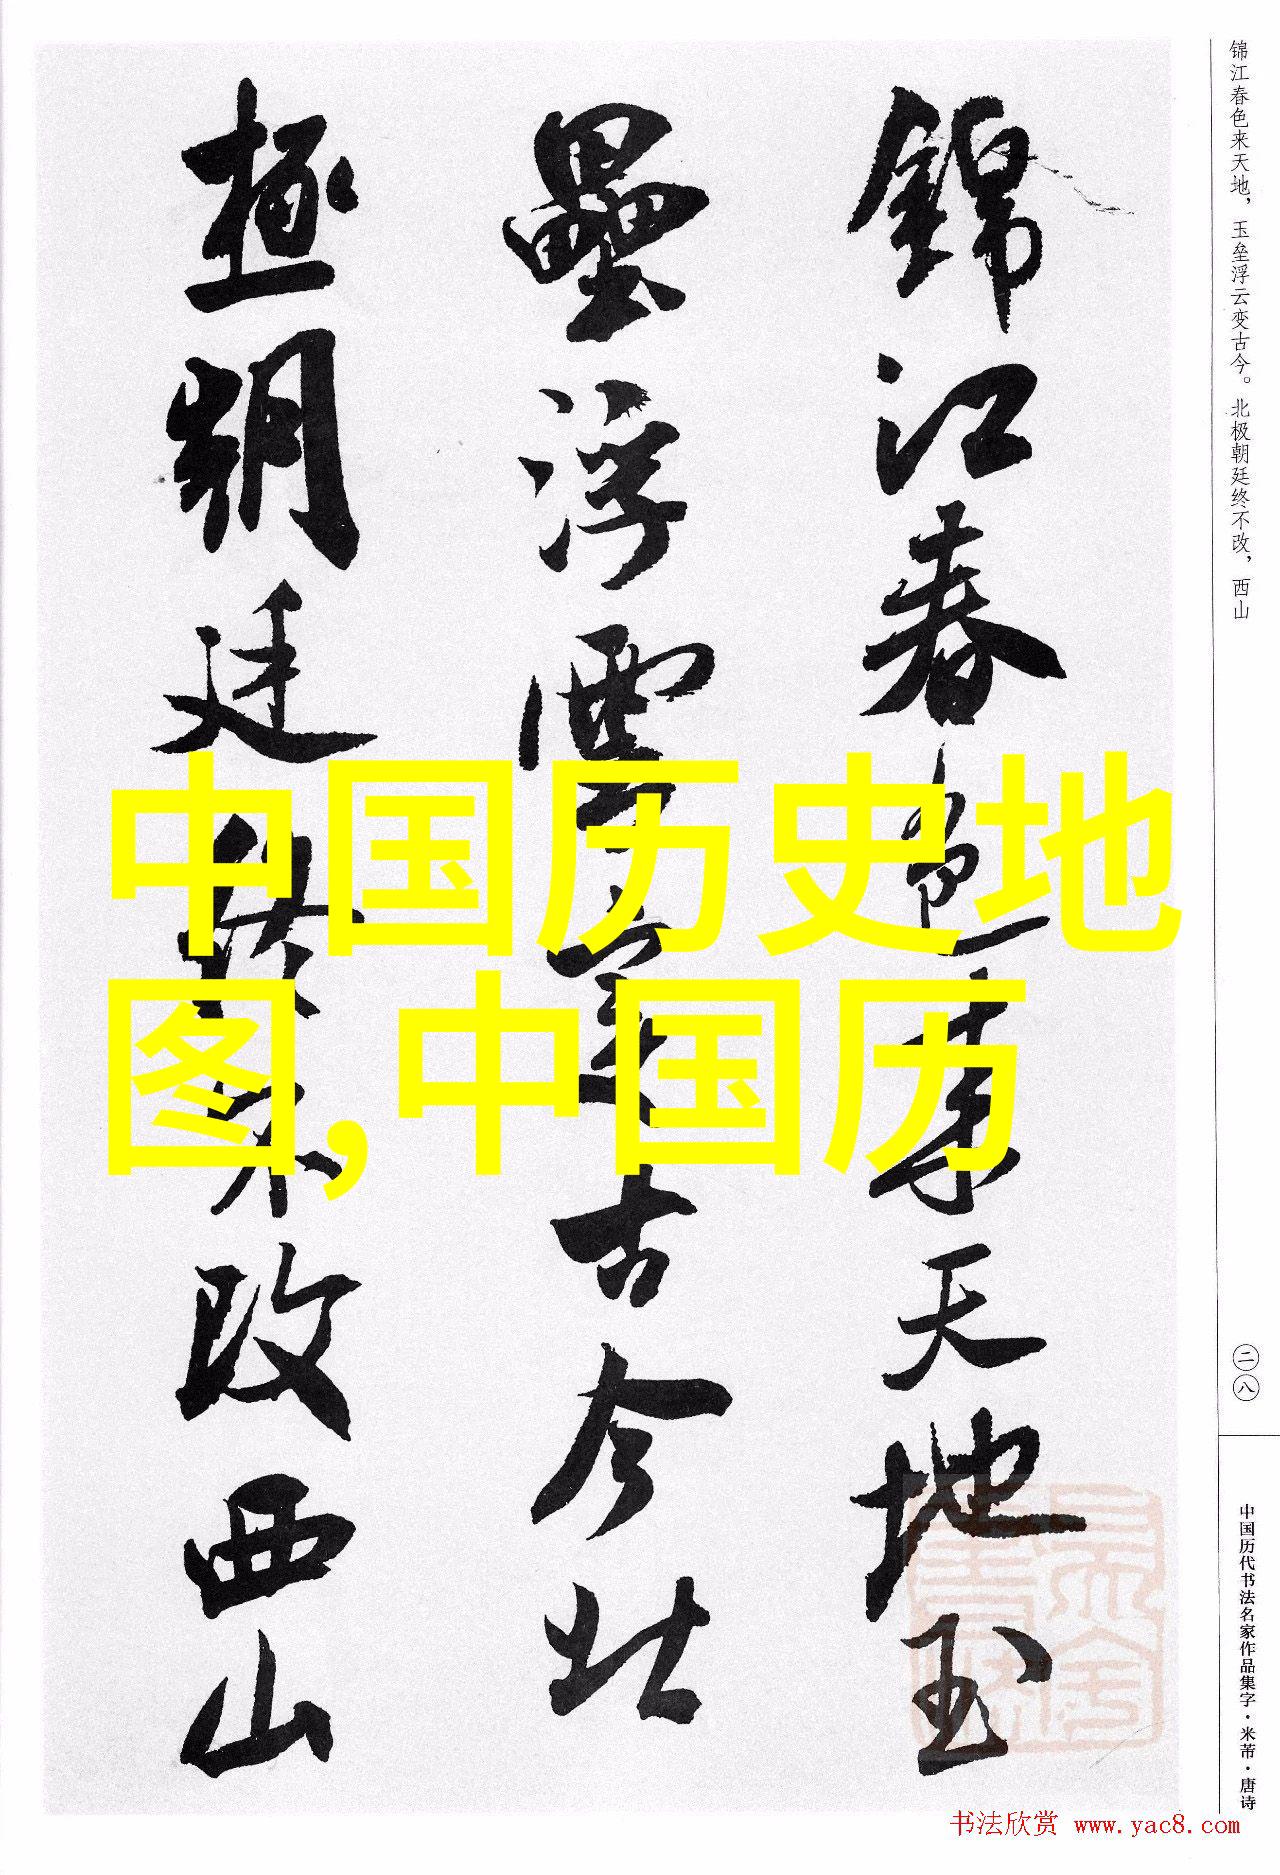 錦江春色来天地玉
壘浮雲變古今北
極朝廷終不改西山
锦江春色来天地，玉垒浮云变古今。北极朝廷终不改，西山
二八
中国历代书法名家作品集字·米芾·唐诗
中国历史地
图,中国历
书法欣赏 www.yac8.com